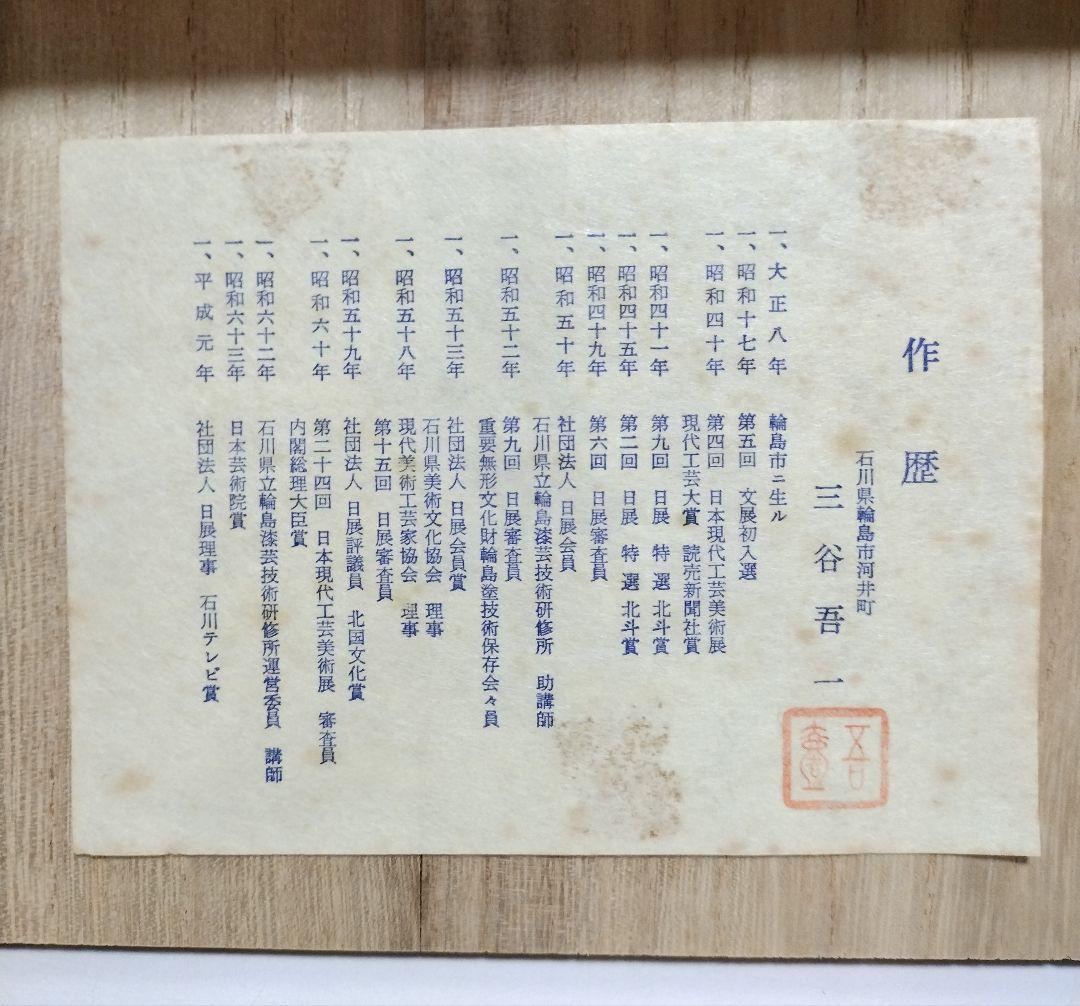 作歴
石川県輪島市河井町
三谷吾一
一、大正八年 輪島市ニ生ル
一、昭和十七年 第五回 文展初入選
一、昭和四十年 第四回 日本現代工芸美術展
現代工芸大賞 読売新聞社賞
一、昭和四十一年 第九回 日展 特選 北斗賞
一、昭和四十五年 第二回 日展 特選 北斗賞
一、昭和四十九年 第六回 日展審査員
一、昭和五十年 社団法人 日展会員
石川県立輪島漆芸技術研修所 助講師
一、昭和五十二年 第九回 日展審査員
重要無形文化財輪島塗技術保存会々員
一、昭和五十三年 社団法人 日展会員賞
石川県美術文化協会 理事
一、昭和五十八年 現代美術工芸家協会 理事
第十五回 日展審査員
一、昭和五十九年 社団法人 日展評議員 北国文化賞
一、昭和六十年 第二十四回 日本現代工芸美術展 審査員
内閣総理大臣賞
一、昭和六十二年 石川県立輪島漆芸技術研修所運営委員 講師
一、昭和六十三年 日本芸術院賞
一、平成元年 社団法人 日展理事 石川テレビ賞
吾壹